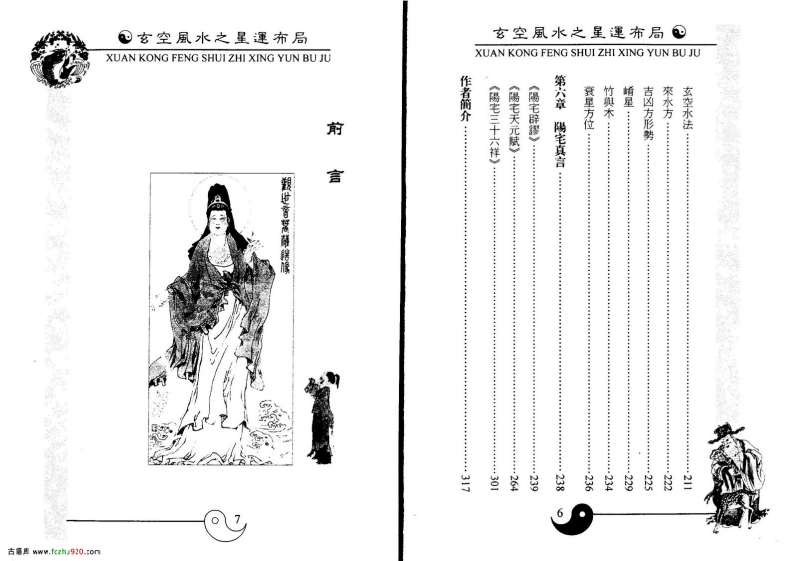 玄空風水之星運布局
XUAN KONG FENG SHUI ZHI XING YUN BU JU
玄空水法 211
來水方 222
吉凶方形勢 225
崤星 229
竹與木 234
衰星方位 236
第六章 陽宅真言 238
《陽宅辟謬》 239
《陽宅天元賦》 264
《陽宅三十六祥》 301
作者簡介 317
6
玄空風水之星運布局
XUAN KONG FENG SHUI ZHI XING YUN BU JU
前言
觀世音菩薩
7
古籍库 www.fczhu920.com